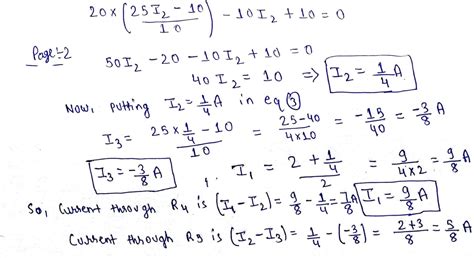 20 × (25I₂ − 10 / 10) − 10I₂ + 10 = 0
Page:-2
50I₂ − 20 − 10I₂ + 10 = 0
40I₂ = 10 ⇒ I₂ = 1/4 A
Now, putting I₂ = 1/4 A in eq ③
I₃ = (25 × 1/4 − 10)/10 = (25−40)/(4×10) = −15/40 = −3/8 A
I₃ = −3/8 A , I₁ = (2 + 1/4)/2 = 9/(4×2) = 9/8 A
So, Current through R4 is (I₁−I₂) = 9/8 − 1/4 = 7/8 A I₁ = 9/8 A
Current through R3 is (I₂−I₃) = 1/4 − (−3/8) = (2+3)/8 = 5/8 A